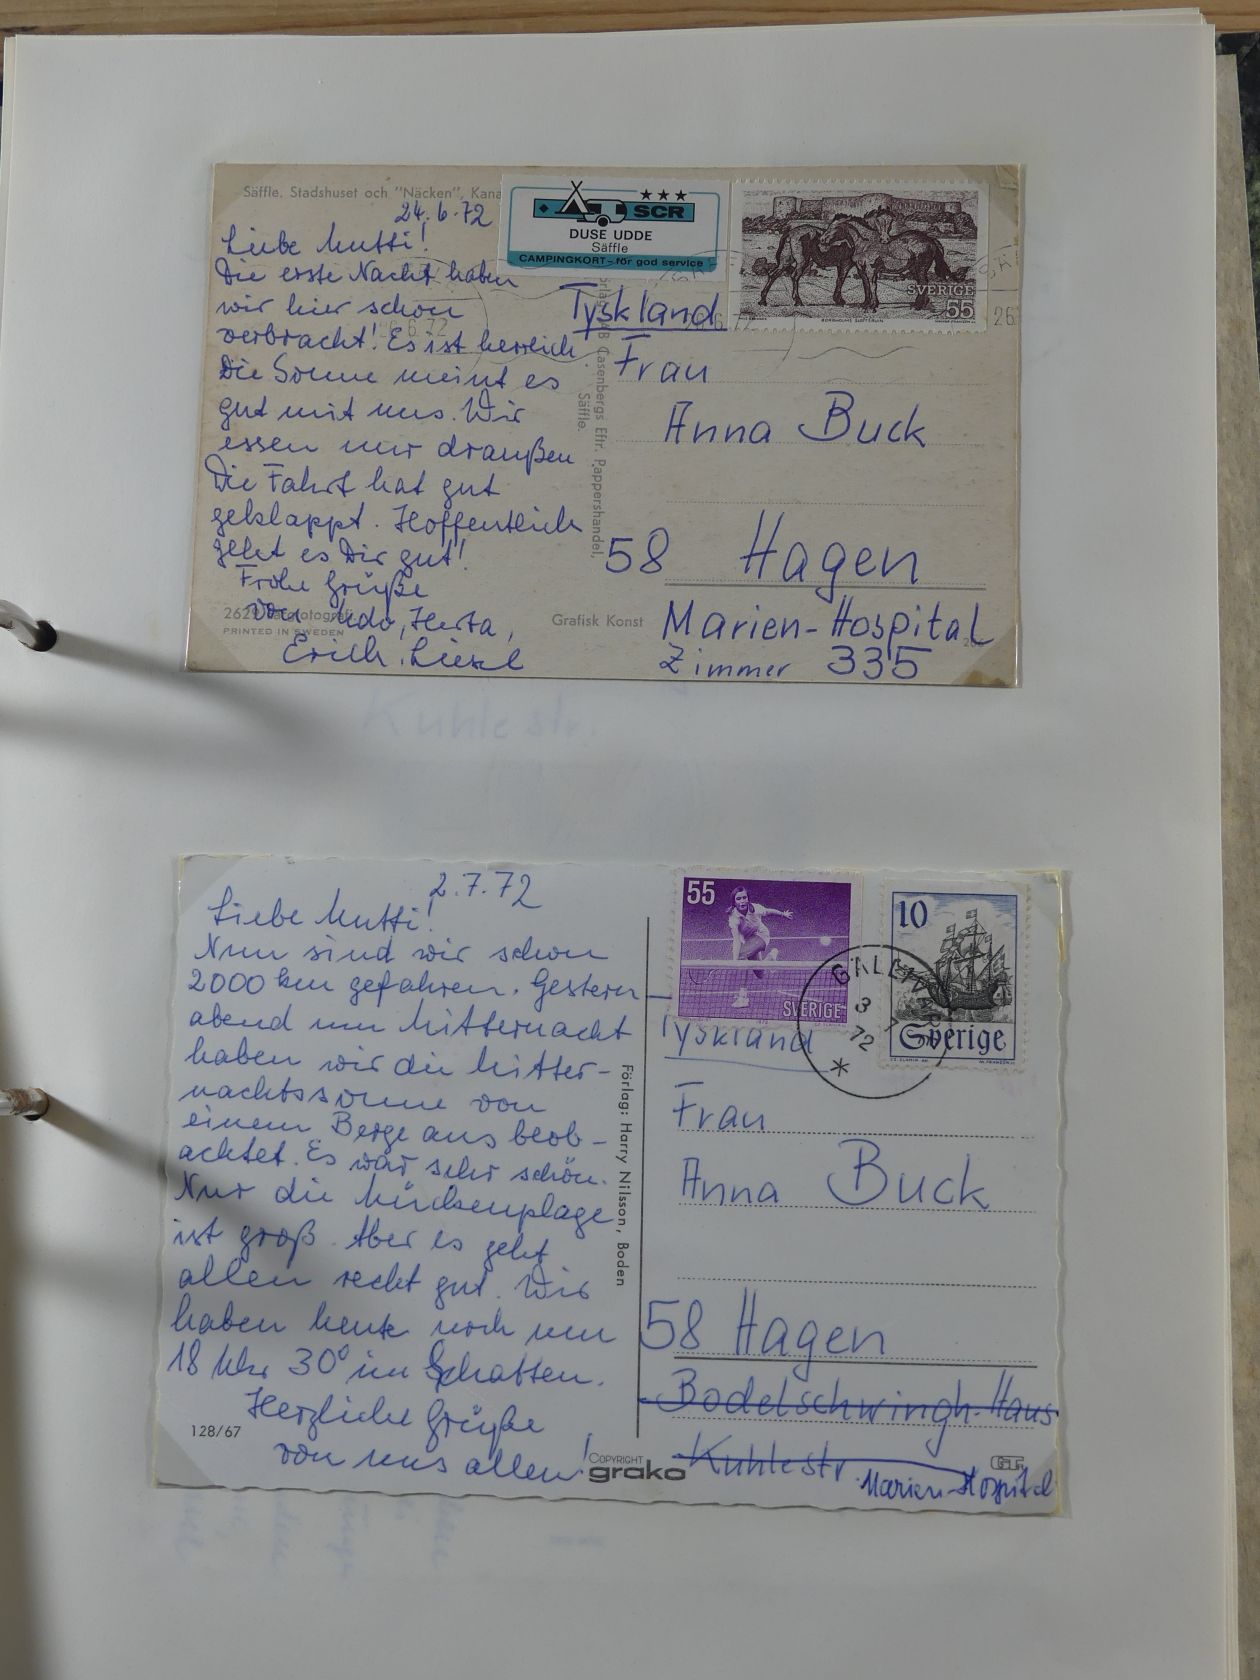 Säffle. Stadshuset och "Näcken", Kana
24.6.72
Liebe Mutti!
Die erste Nacht haben
wir hier schon
verbracht! Es ist herrlich.
Die Sonne meint es
gut mit uns. Wir
essen nur draußen
Die Fahrt hat gut
geklappt. Hoffentlich
geht es Dir gut!
Frohe Grüße
von Udo, Herta,
Erich, Liesel
2629
PRINTED IN SWEDEN
Grafisk Konst
AB Casenbergs Eftr. Pappershandel,
Säffle.
★★★
SCR
DUSE UDDE
Säffle
CAMPINGKORT - för god service
SVERIGE
55
26
6.72
Tyskland
Frau
Anna Buck
58 Hagen
Marien-Hospital
Zimmer 335
Kuhlestr.
2.7.72
Liebe Mutti!
Nun sind wir schon
2000 km gefahren. Gestern
abend um Mitternacht
haben wir die Mitter-
nachtssonne von
einem Berge aus beob-
achtet. Es war sehr schön.
Nur die Mückenplage
ist groß. Aber es geht
allen recht gut. Wir
haben heute noch um
18 Uhr 30° im Schatten.
Herzliche Grüße
von uns allen!
128/67
Förlag: Harry Nilsson, Boden
COPYRIGHT
grako
55
SVERIGE
10
Sverige
GÄLLIVARE
3 7
72
*
Tyskland
Frau
Anna Buck
58 Hagen
Bodelschwingh-Haus
Kuhlestr.
Marien-Hospital